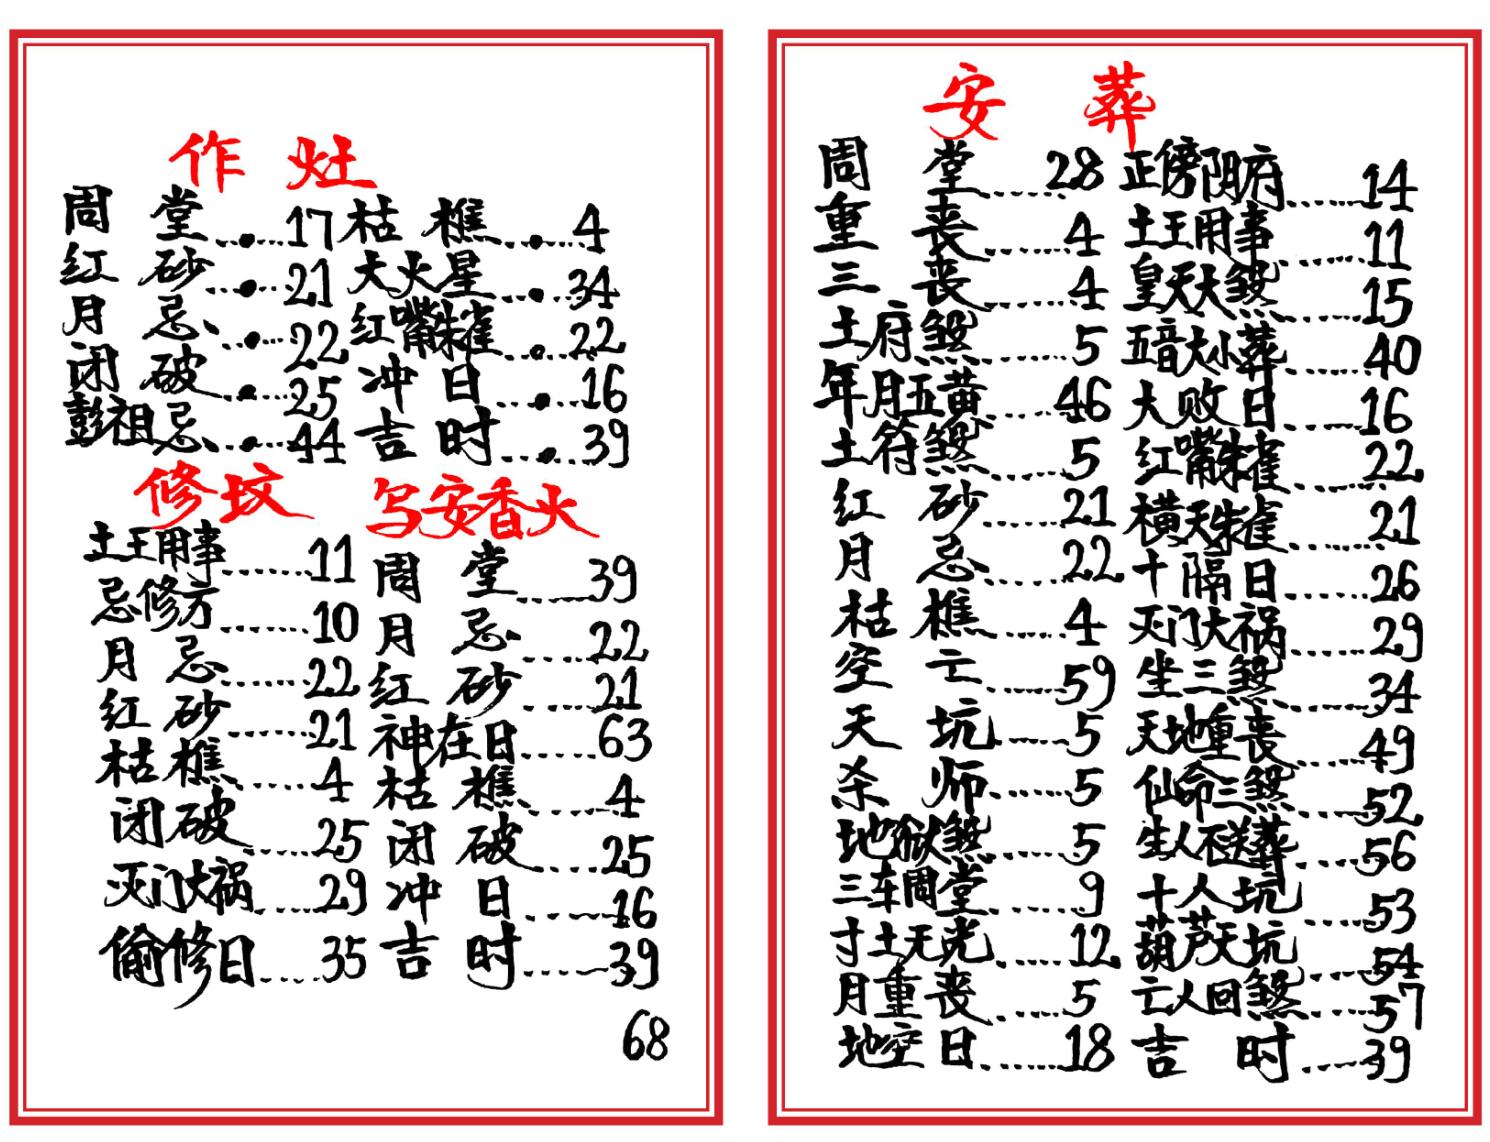 作灶
周堂......17 枯樵......4
红砂......21 大火星......34
月忌......22 红嘴朱雀......22
闭破......25 冲日......16
彭祖忌......44 吉时......39
修坟 写安香火
土王用事......11 周堂......39
忌修方......10 月忌......22
月忌......22 红砂......21
红砂......21 神在日......63
枯樵......4 枯樵......4
闭破......25 闭破......25
灭门大祸......29 冲日......16
偷修日......35 吉时......39
68
安葬
周堂......28 正傍阴府......14
重丧......4 土王用事......11
三丧......4 皇天大煞......15
土府煞......5 五音大小葬......40
年月五黄......46 大败日......16
土符煞......5 红嘴朱雀......22
红砂......21 横天朱雀......21
月忌......22 十隔日......26
枯樵......4 灭门大祸......29
空亡......59 坐三煞......34
天坑......5 天地重丧......49
杀师......5 仙命三煞......52
地狱煞......5 生人不送葬......56
三车周堂......9 十人坑......53
寸土无光......12 葫芦天坑......54
月重丧......5 亡人回煞......57
地空日......18 吉时......39